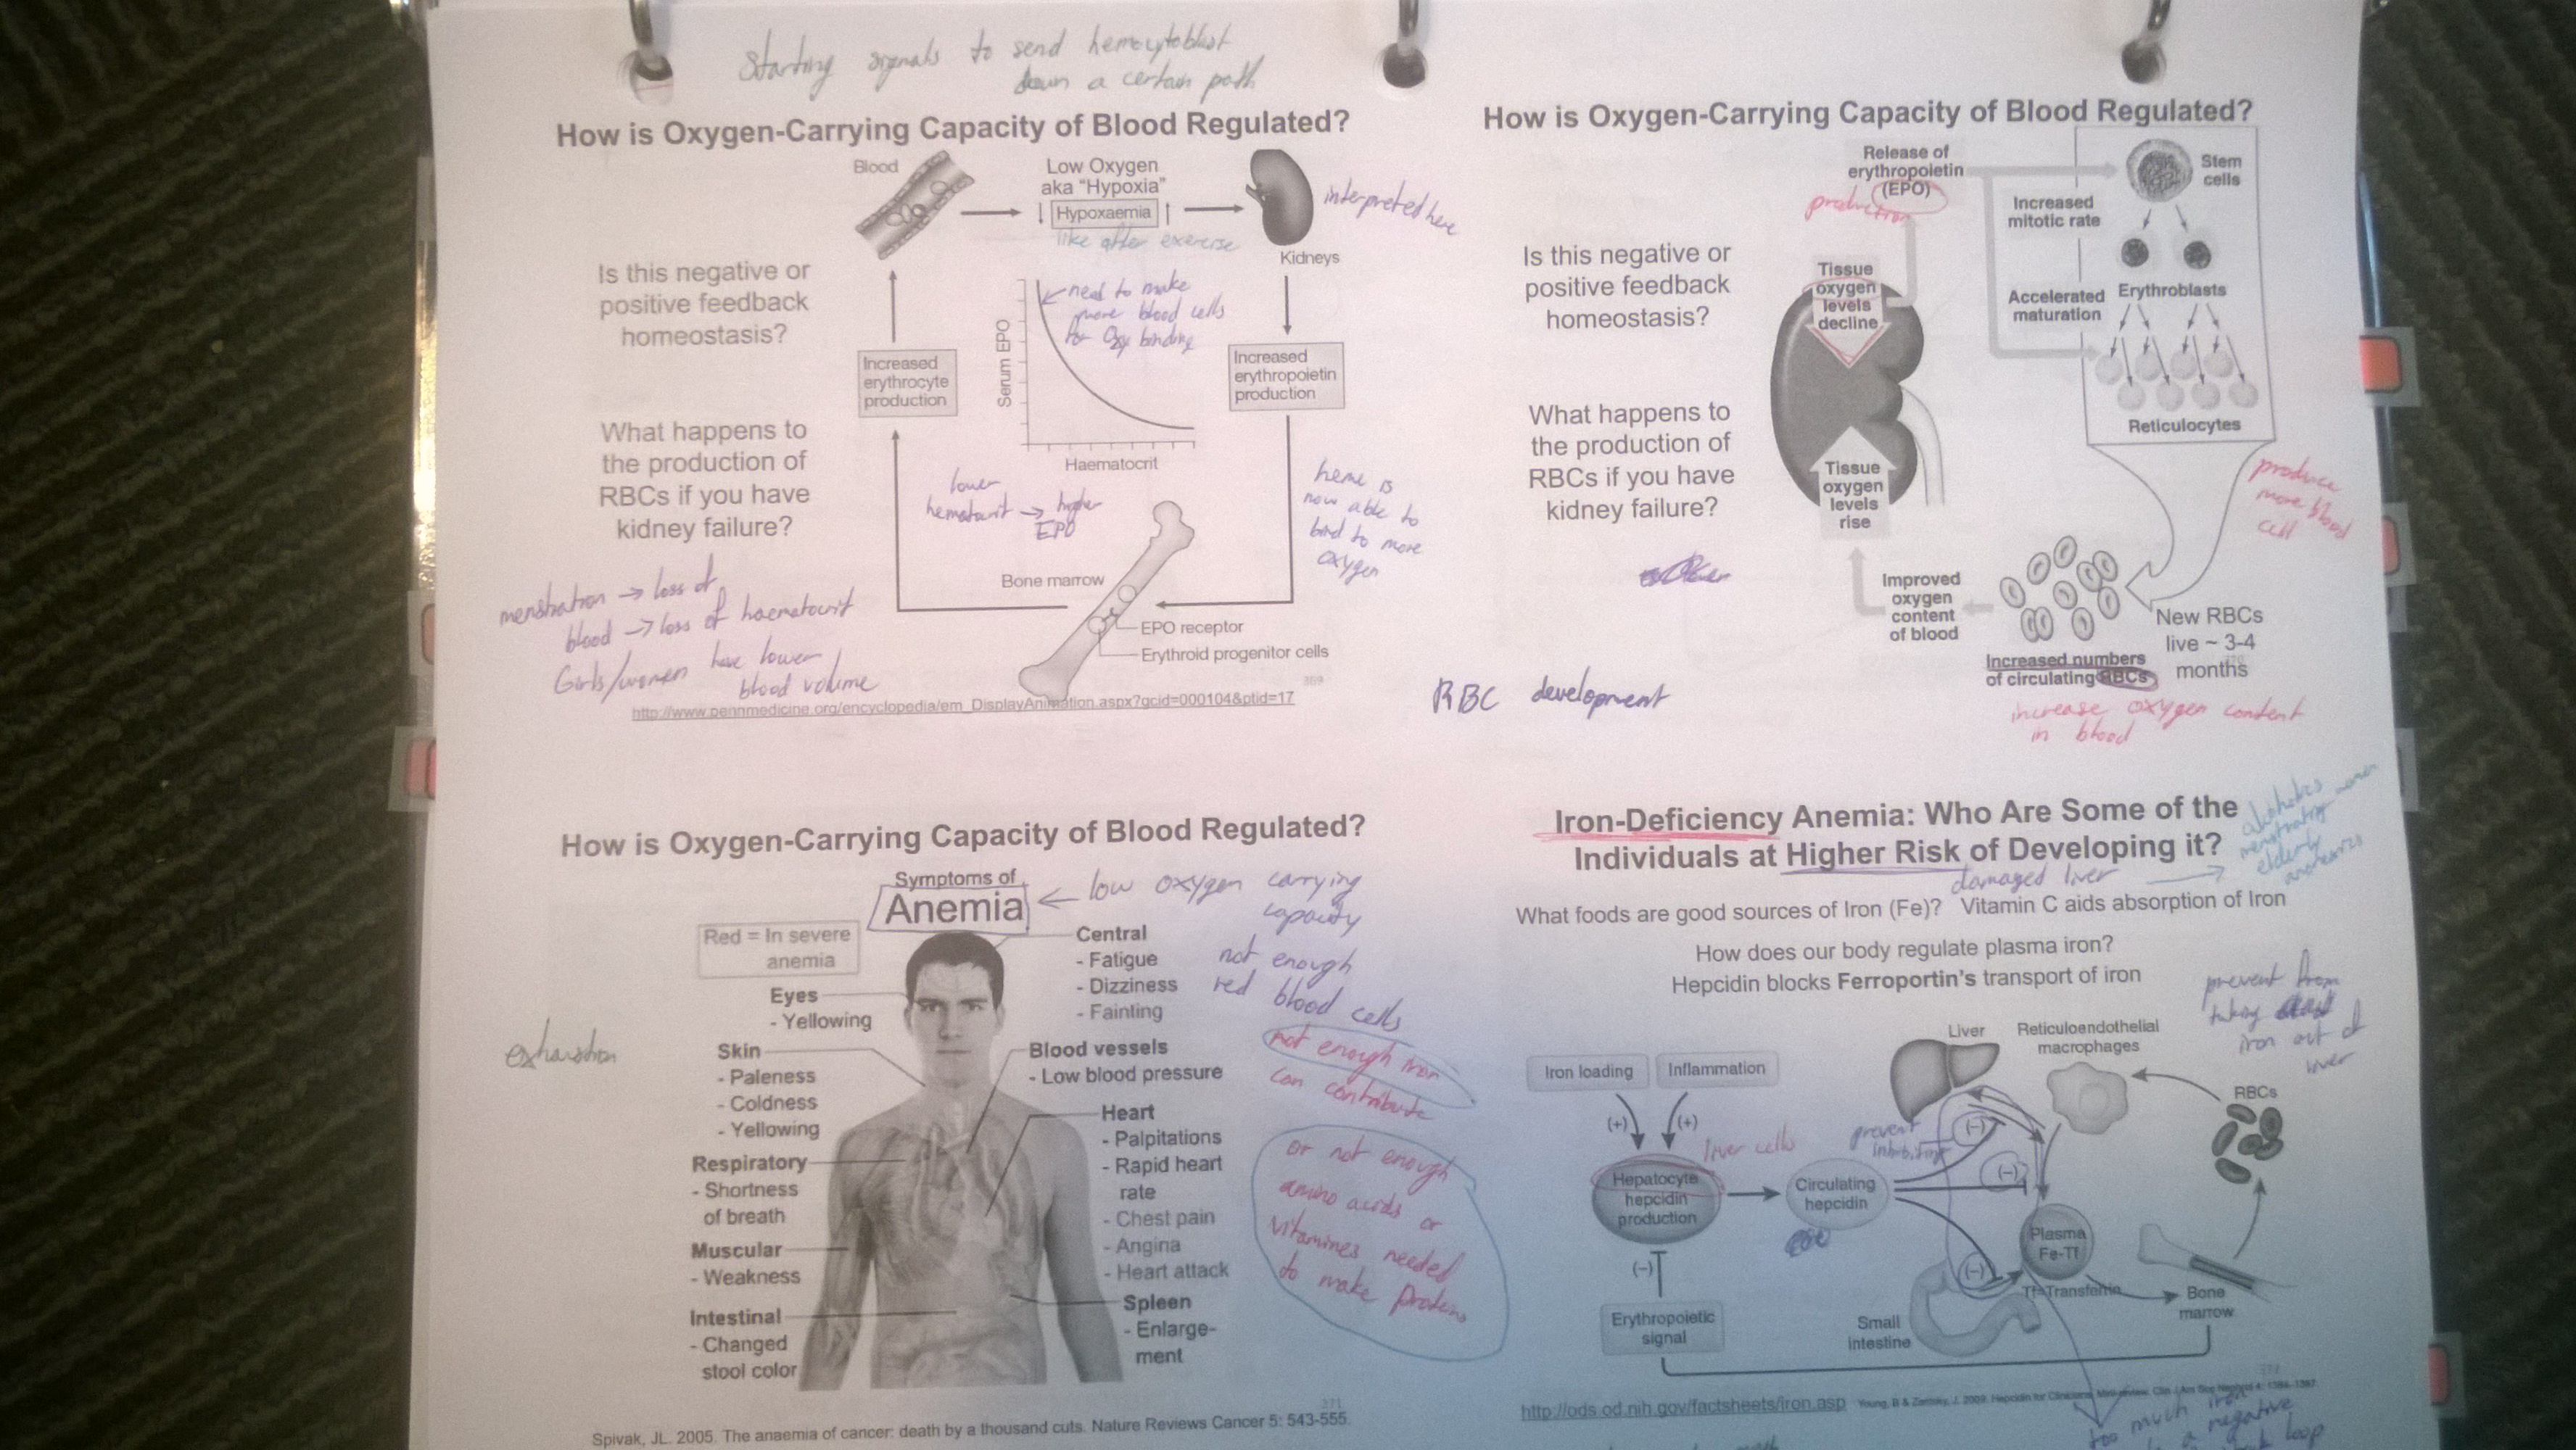 Starting signals to send hemocytoblast
down a certain path
How is Oxygen-Carrying Capacity of Blood Regulated?
Blood
Low Oxygen
aka "Hypoxia"
Hypoxaemia
like after exercise
interpreted here
Kidneys
Is this negative or
positive feedback
homeostasis?
need to make
more blood cells
for Oxy binding
Serum EPO
Haematocrit
Increased
erythrocyte
production
Increased
erythropoietin
production
What happens to
the production of
RBCs if you have
kidney failure?
lower
hematocrit → higher
EPO
heme is
now able to
bind to more
oxygen
Bone marrow
EPO receptor
Erythroid progenitor cells
menstration → loss of
blood → loss of haematocrit
Girls/women have lower
blood volume
369
http://www.pennmedicine.org/encyclopedia/em_DisplayAnimation.aspx?gcid=000104&ptid=17
How is Oxygen-Carrying Capacity of Blood Regulated?
Release of
erythropoietin
(EPO)
production
Stem
cells
Increased
mitotic rate
Is this negative or
positive feedback
homeostasis?
Tissue
oxygen
levels
decline
Accelerated
maturation
Erythroblasts
Reticulocytes
What happens to
the production of
RBCs if you have
kidney failure?
Tissue
oxygen
levels
rise
produce
more blood
cell
Improved
oxygen
content
of blood
New RBCs
live ~ 3-4
months
Increased numbers
of circulating RBCs
increase oxygen content
in blood
RBC development
How is Oxygen-Carrying Capacity of Blood Regulated?
Symptoms of
Anemia
← low oxygen carrying
capacity
not enough
red blood cells
not enough iron
can contribute
or not enough
amino acids or
vitamines needed
to make proteins
Red = In severe
anemia
Central
- Fatigue
- Dizziness
- Fainting
Eyes
- Yellowing
Skin
- Paleness
- Coldness
- Yellowing
exhaustion
Blood vessels
- Low blood pressure
Heart
- Palpitations
- Rapid heart
rate
- Chest pain
- Angina
- Heart attack
Respiratory
- Shortness
of breath
Muscular
- Weakness
Intestinal
- Changed
stool color
Spleen
- Enlarge-
ment
371
Spivak, JL. 2005. The anaemia of cancer: death by a thousand cuts. Nature Reviews Cancer 5: 543-555.
Iron-Deficiency Anemia: Who Are Some of the
Individuals at Higher Risk of Developing it?
damaged liver →
menstrating women
elderly
What foods are good sources of Iron (Fe)? Vitamin C aids absorption of Iron
How does our body regulate plasma iron?
Hepcidin blocks Ferroportin's transport of iron
prevent from
taking
iron out of
liver
Liver
Reticuloendothelial
macrophages
Iron loading
Inflammation
RBCs
(+)
(+)
(-)
(-)
liver cells
prevent
Hepatocyte
hepcidin
production
Circulating
hepcidin
Plasma
Fe-Tf
(-)
(-)
Tf=Transferrin
Bone
marrow
Erythropoietic
signal
Small
intestine
http://ods.od.nih.gov/factsheets/iron.asp
too much iron
a negative
loop